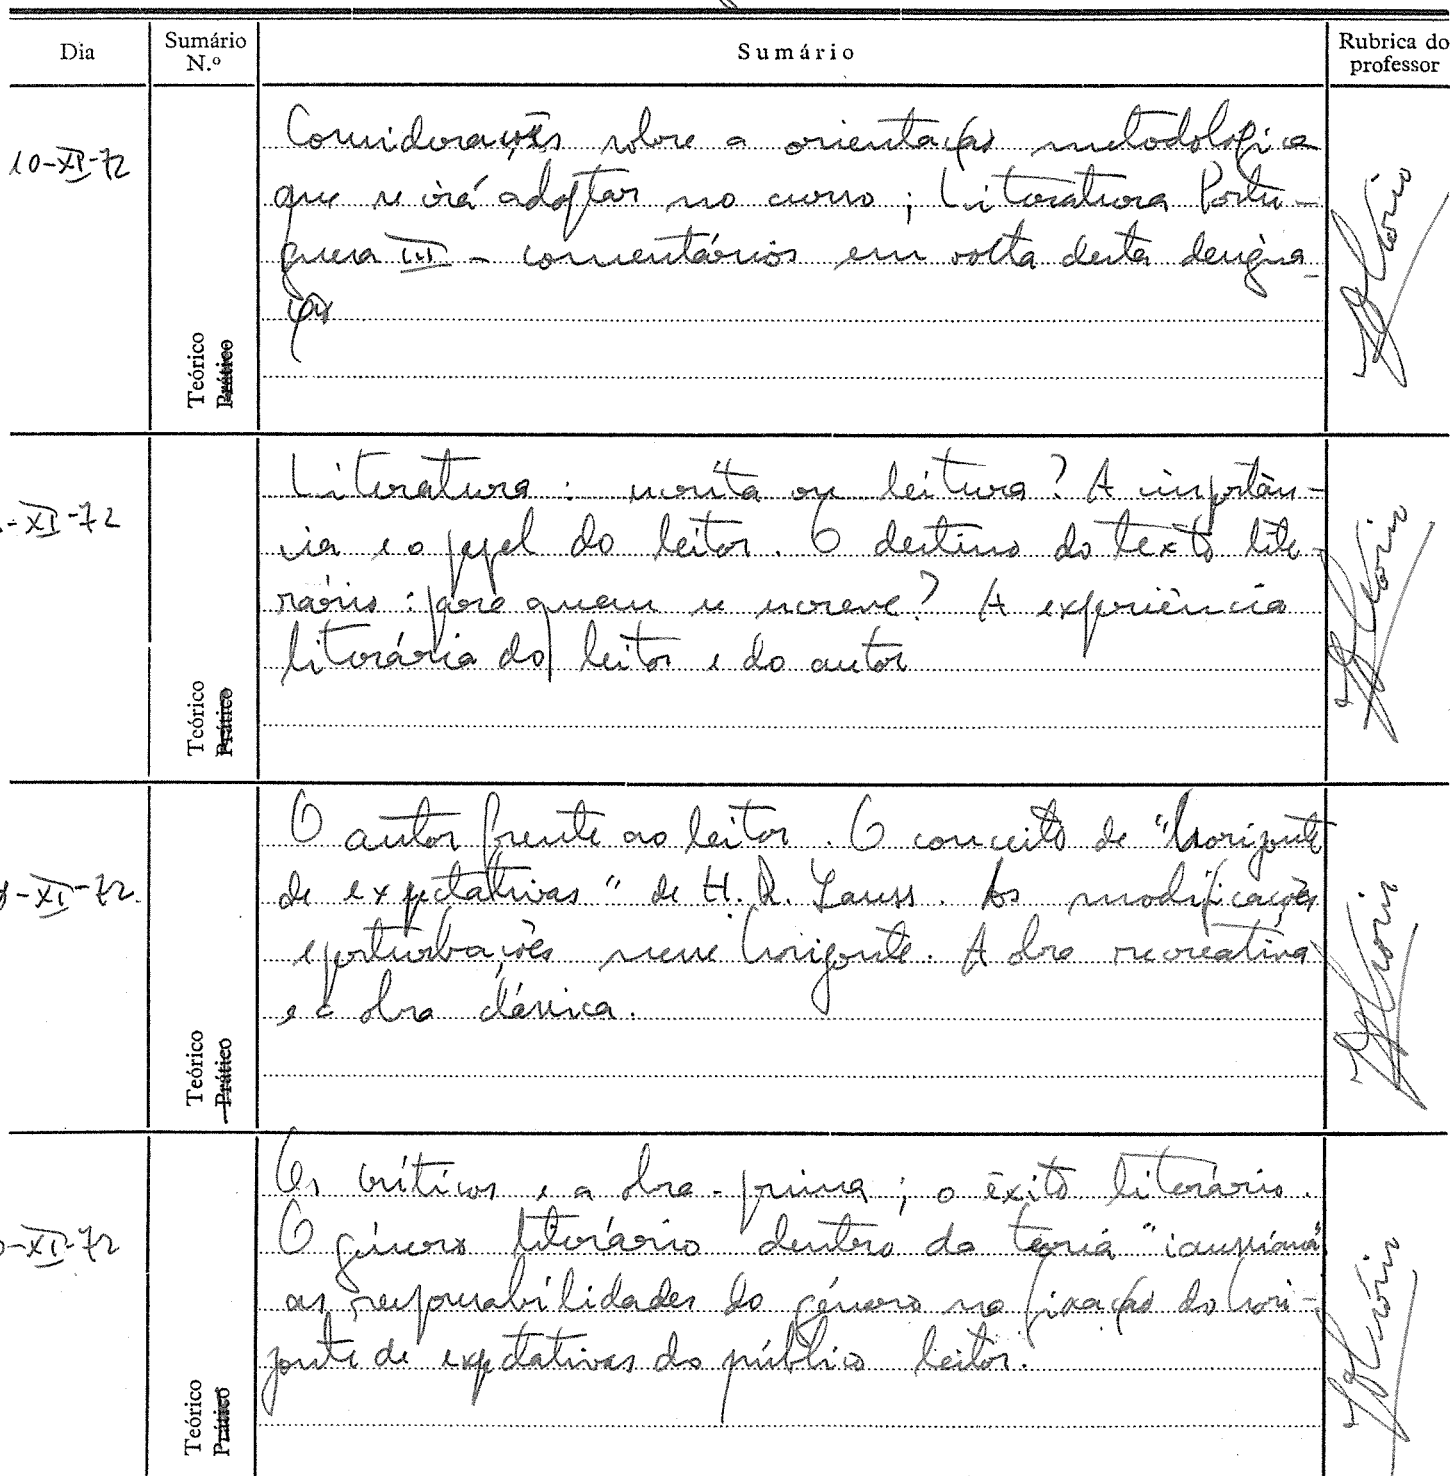 Dia
Sumário N.º
Sumário
Rubrica do professor
10-XI-72
Teórico
Prático
Considerações sobre a orientação metodológica
que se irá adoptar no curso; Literatura Portu-
guesa III - comentários em volta desta designa-
ção
-XI-72
Teórico
Prático
Literatura: escrita ou leitura? A importân-
cia e o papel do leitor. O destino do texto lite-
rário: para quem se escreve? A experiência
literária do leitor e do autor
-XI-72.
Teórico
Prático
O autor frente ao leitor. O conceito de "horizonte
de expectativas" de H. R. Jauss. As modificações
e perturbações nesse horizonte. A obra recreativa
e a obra clássica.
-XI-72
Teórico
Prático
Os críticos e a obra-prima; o êxito literário.
O género literário dentro da teoria "iaussiana"
as responsabilidades do género na fixação do hori-
zonte de expectativas do público leitor.